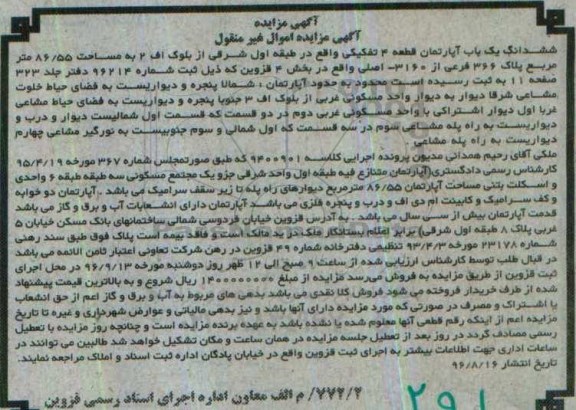 آگهی مزایده
آگهی مزایده اموال غیر منقول
ششدانگ یک باب آپارتمان قطعه ۴ تفکیکی واقع در طبقه اول شرقی از بلوک اف ۲ به مساحت ۸۶/۵۵ متر
مربع پلاک ۳۶۶ فرعی از ۳۱۶۰- اصلی واقع در بخش ۴ قزوین که ذیل ثبت شماره ۹۶۲۱۴ دفتر جلد ۳۲۳
صفحه ۱۱ به ثبت رسیده است محدود به حدود آپارتمان : شمالا پنجره و دیواریست به فضای حیاط خلوت
مشاعی شرقا دیوار به دیوار واحد مسکونی غربی از بلوک اف ۳ جنوبا پنجره و دیواریست به فضای حیاط مشاعی
غربا اول دیوار اشتراکی با واحد مسکونی غربی دوم در دو قسمت که قسمت اول شمالیست دیوار و درب و
دیواریست به راه پله مشاعی سوم در سه قسمت که اول شمالی و سوم جنوبیست به نورگیر مشاعی چهارم
دیواریست به راه پله مشاعی
ملکی آقای رحیم همدانی مدیون پرونده اجرایی کلاسه ۹۴۰۰۹۰۱ که طبق صورتمجلس شماره ۳۶۷ مورخه ۹۵/۴/۱۹
کارشناس رسمی دادگستری(آپارتمان متنازع فیه طبقه اول واحد شرقی جزو یک مجتمع مسکونی سه طبقه طبقه ۶ واحدی
و اسکلت بتنی مساحت آپارتمان ۸۶/۵۵ مترمربع دیوارهای راه پله تا زیر سقف سرامیک می باشد .آپارتمان دو خوابه
و کف سرامیک و کابینت ام دی اف و درب و پنجره فلزی می باشد آپارتمان دارای انشعابات آب و برق و گاز می باشد
قدمت آپارتمان بیش از سی سال می باشد . به آدرس قزوین خیابان فردوسی شمالی ساختمانهای بانک مسکن خیابان ۵
غربی پلاک ۸ طبقه اول شرقی) برابر اعلام بستانکار ملک در ید مالک است و فاقد بیمه است پلاک فوق طبق سند رهنی
شماره ۲۳۱۷۸ مورخه ۹۳/۴/۳ تنظیمی دفترخانه شماره ۴۹ قزوین در رهن شرکت تعاونی اعتبار ثامن الائمه می باشد
در قبال طلب توسط کارشناس ارزیابی شده از ساعت ۹ صبح الی ۱۲ ظهر روز دوشنبه مورخه ۹۶/۹/۱۳ در محل اجرای
ثبت قزوین از طریق مزایده به فروش می‌رسد مزایده از مبلغ ۱۴۰۰۰۰۰۰۰۰ ریال شروع و به بالاترین قیمت پیشنهاد
شده از طرف خریدار فروخته می شود فروش کلا نقدی می باشد بدهی های مربوط به آب و برق و گاز اعم از حق انشعاب
یا اشتراک و مصرف در صورتی که مورد مزایده دارای آنها باشد و نیز بدهی مالیاتی و عوارض شهرداری و غیره تا تاریخ
مزایده اعم از اینکه رقم قطعی آنها معلوم شده یا نشده باشد به عهده برنده مزایده است و چنانچه روز مزایده با تعطیل
رسمی مصادف گردد در روز بعد از تعطیل جلسه مزایده در همان ساعت و مکان تشکیل خواهد شد طالبین می توانند در
ساعات اداری جهت اطلاعات بیشتر به اجرای ثبت قزوین واقع در خیابان پادگان اداره ثبت اسناد و املاک مراجعه نمایند.
تاریخ انتشار ۹۶/۸/۱۶
۷۷۲/۲/ م الف معاون اداره اجرای اسناد رسمی قزوین
۲۹۱